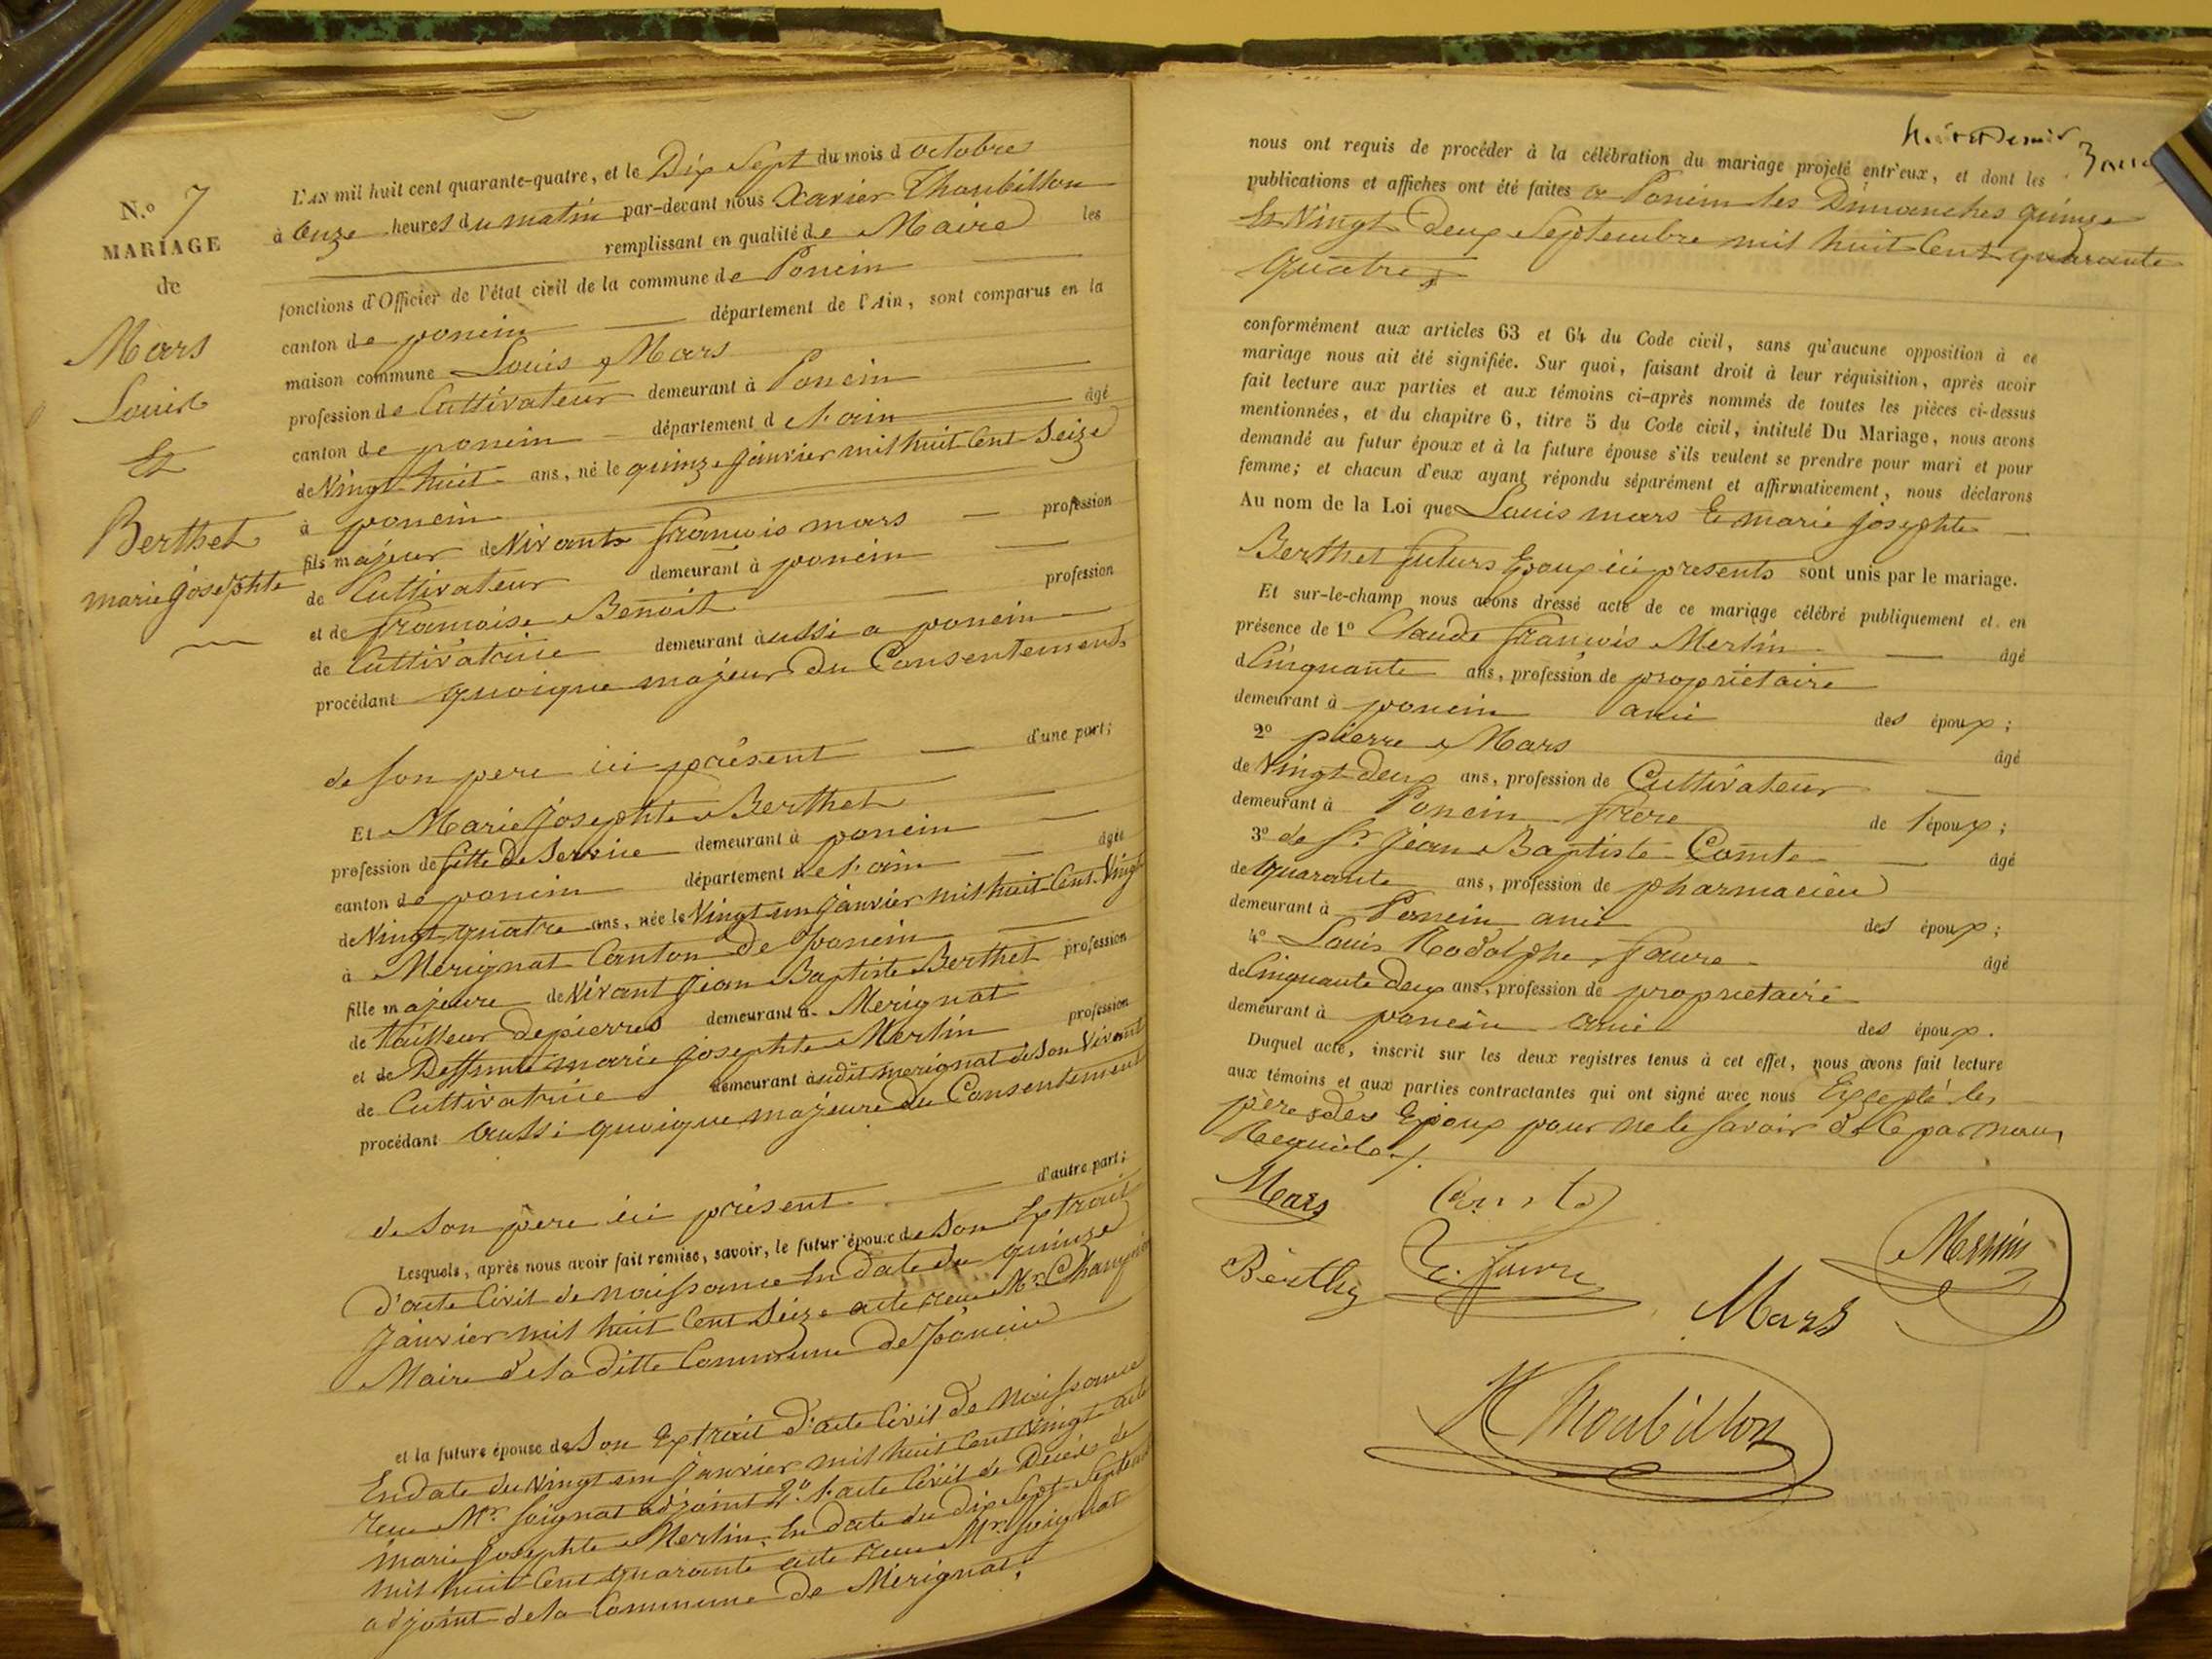 N.o 7
MARIAGE
de
Mars
Louis
Et
Berthet
marie josephte
L'AN mil huit cent quarante-quatre, et le Dix Sept du mois d octobre
à Onze heures du matin par-devant nous Xavier Thoubillon
remplissant en qualité de Maire les
fonctions d'Officier de l'état civil de la commune de Poncin
canton de poncin département de l'Ain, sont comparus en la
maison commune Louis Mars
profession de Cultivateur demeurant à Poncin
canton de poncin département de l'ain âgé
de Vingt huit ans, né le quinze janvier mil huit Cent Seize
à poncin
fils majeur de Vivants francois mars profession
de Cultivateur demeurant à poncin
et de francoise Benoit profession
de Cultivatrice demeurant aussi a poncin
procédant quoique majeur du Consentement
de son pere ici présent d'une part;
Et Marie josephte Berthet
profession de fille de Service demeurant à poncin
canton de poncin département de l'ain âgée
de Vingt quatre ans, née le Vingt un janvier mil huit Cent Vingt
à Mérignat Canton de poncin
fille majeure de Vivant jean Baptiste Berthet profession
de tailleur de pierres demeurant à Merignat
et de Deffunte marie josephte Merlin profession
de Cultivatrice demeurant audit merignat de son Vivant
procédant aussi quoique majeure du Consentement
de son pere ici présent d'autre part;
Lesquels, après nous avoir fait remise, savoir, le futur époux de Son Extrait
d'acte Civil de naissance En date du quinze
janvier mil huit Cent Seize acte reçu Mr.
Maire de la ditte Commune de Poncin
et la future épouse de Son Extrait d'acte Civil de naissance
En date du Vingt un janvier mil huit Cent Vingt acte
reçu Mr. Soignat adjoint 2o. l'acte Civil de Décés de
marie josephte Merlin. En date du dix Sept Septembre
mil huit Cent quarante acte reçu Mr. Soignat
adjoint de la Commune de Mérignat,
nous ont requis de procéder à la célébration du mariage projeté entr'eux, et dont les
publications et affiches ont été faites a Poncin les Dimanches quinze
Et Vingt deux Septembre mil huit Cent quarante
quatre
conformément aux articles 63 et 64 du Code civil, sans qu'aucune opposition à ce
mariage nous ait été signifiée. Sur quoi, faisant droit à leur réquisition, après avoir
fait lecture aux parties et aux témoins ci-après nommés de toutes les pièces ci-dessus
mentionnées, et du chapitre 6, titre 5 du Code civil, intitulé Du Mariage, nous avons
demandé au futur époux et à la future épouse s'ils veulent se prendre pour mari et pour
femme; et chacun d'eux ayant répondu séparément et affirmativement, nous déclarons
Au nom de la Loi que Louis mars Et marie josephte
Berthet futurs Epoux ici presents sont unis par le mariage.
Et sur-le-champ nous avons dressé acte de ce mariage célébré publiquement et en
présence de 1o Claude francois Merlin âgé
de Cinquante ans, profession de propriétaire
demeurant à poncin ami des époux;
2o pierre Mars âgé
de Vingt deux ans, profession de Cultivateur
demeurant à Poncin frere de l'époux;
3o de Sr. jean Baptiste Comte âgé
de quarante ans, profession de pharmacien
demeurant à Poncin ami des époux;
4o Louis Rodolphe faure âgé
de Cinquante deux ans, profession de propriétaire
demeurant à poncin ami des époux.
Duquel acte, inscrit sur les deux registres tenus à cet effet, nous avons fait lecture
aux témoins et aux parties contractantes qui ont signé avec nous Excepté les
peres des Epoux pour ne le savoir de ce par nous
Requis.
Mars Comte
Berthet Faure Mars Merlin
X Thoubillon